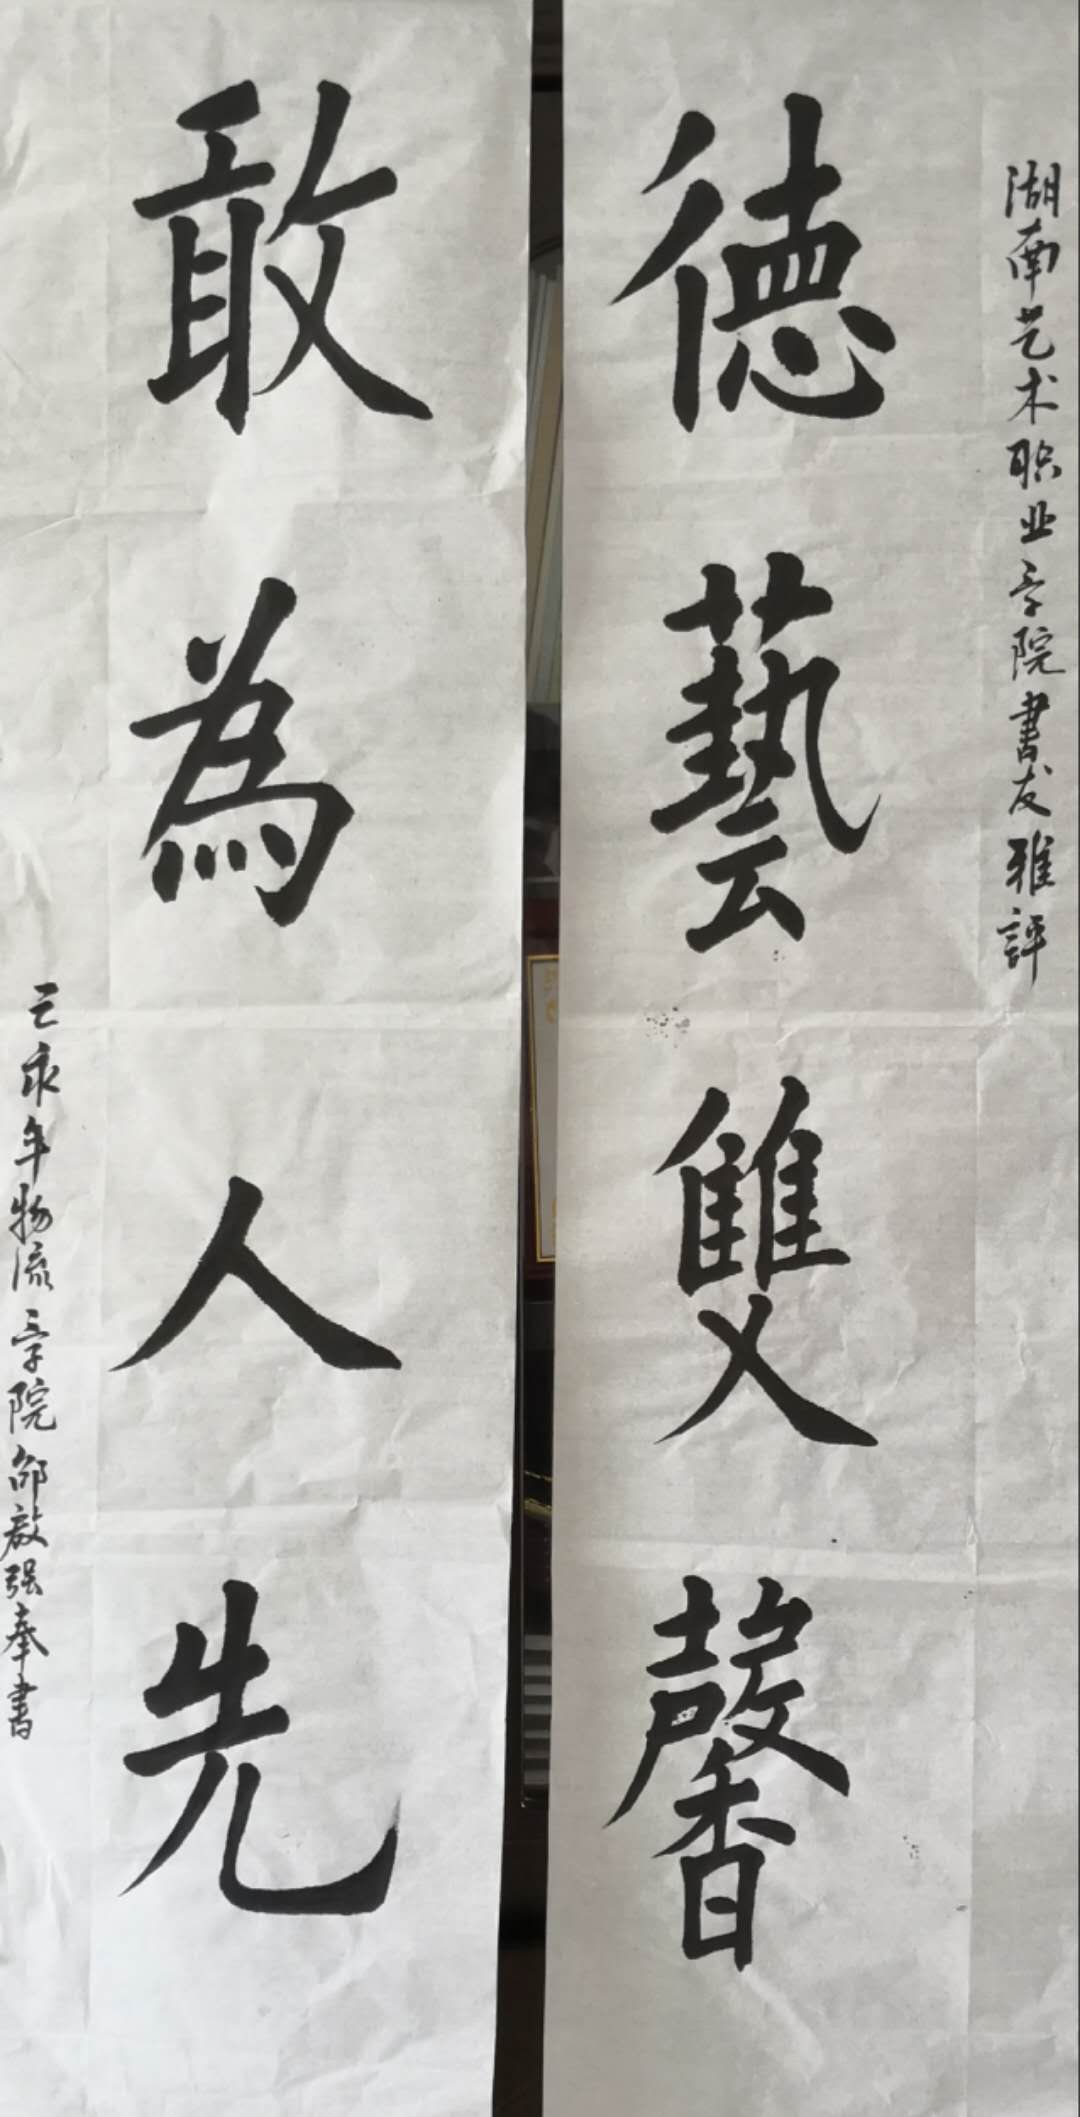 湖南艺术职业学院書友雅評
德藝雙馨
敢為人先
己亥年物流学院邵啟强奉書